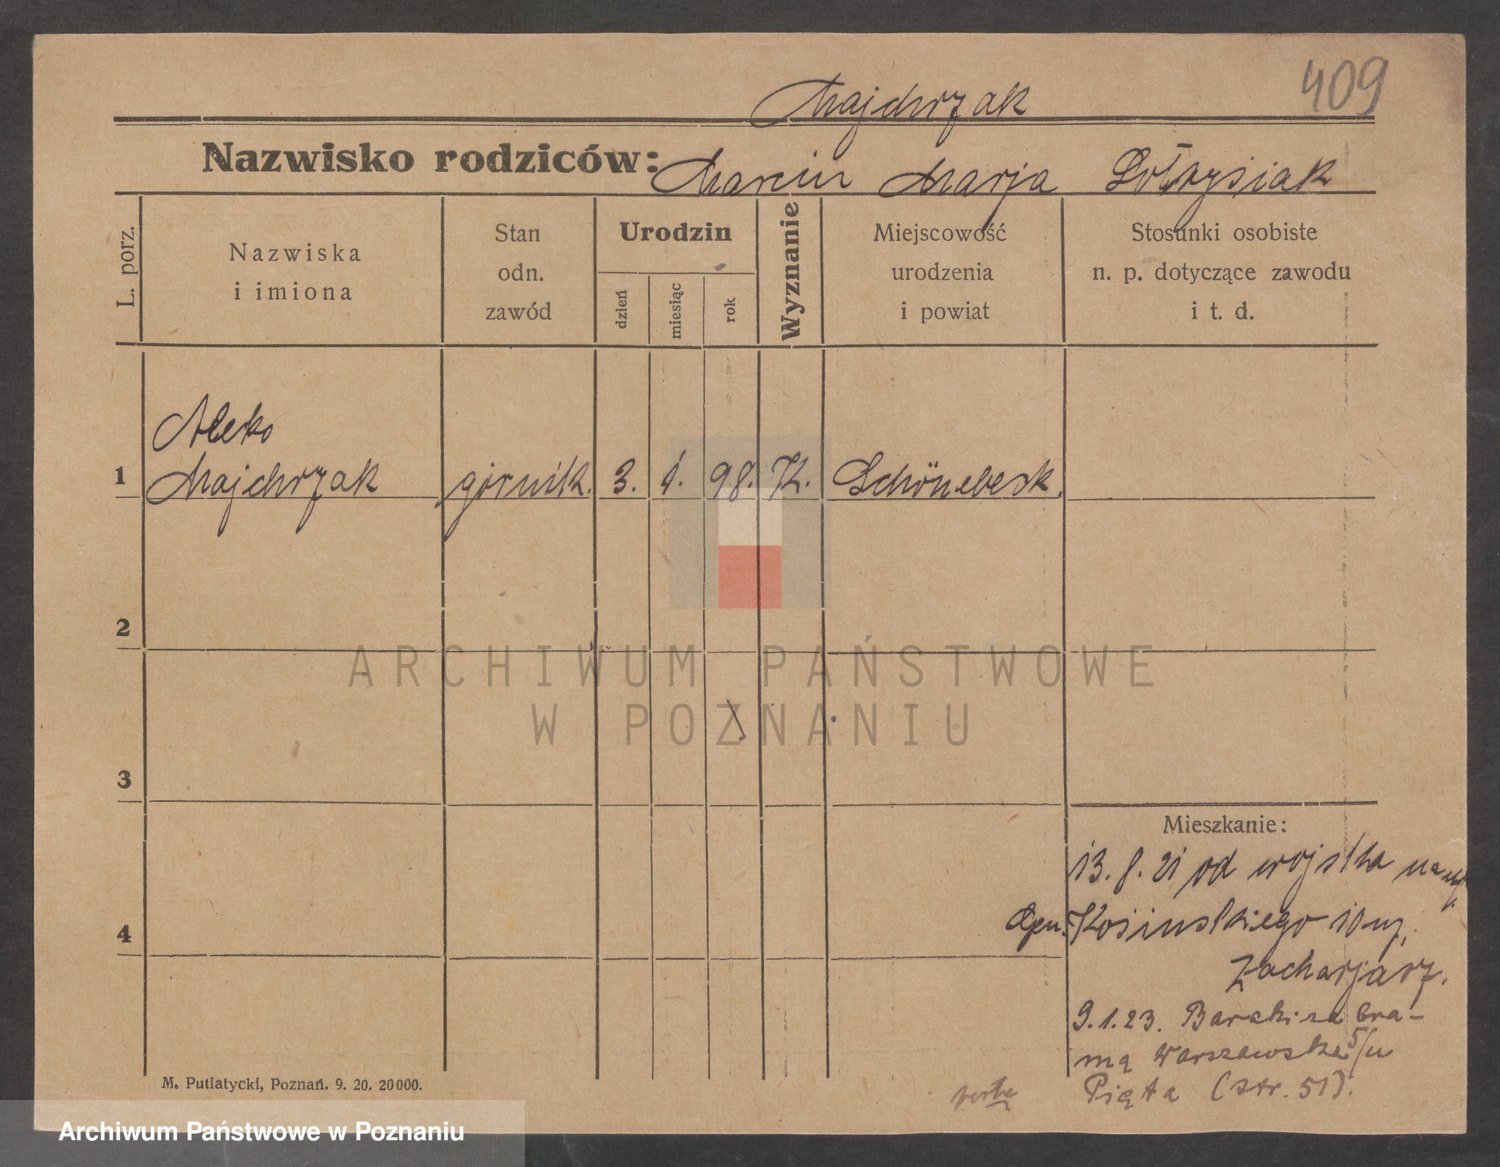 409
Majchrzak
Nazwisko rodziców: Marcin Marja Sołtysiak
L. porz.
Nazwiska
i imiona
Stan
odn.
zawód
Urodzin
dzień
miesiąc
rok
Wyznanie
Miejscowość
urodzenia
i powiat
Stosunki osobiste
n. p. dotyczące zawodu
i t. d.
Aleko
1 Majchrzak górnik. 3. 1. 98. K. Schönebeck.
2
ARCHIWUM PAŃSTWOWE
W POZNANIU
3
Mieszkanie:
13. 8. 21 od wojska
4
Kosinskiego 10
Zacharjasz.
9.1.23. Baraki za bra-
mą Warszawską
Piąta (str. 51).
M. Putiatycki, Poznań. 9. 20. 20000.
Archiwum Państwowe w Poznaniu